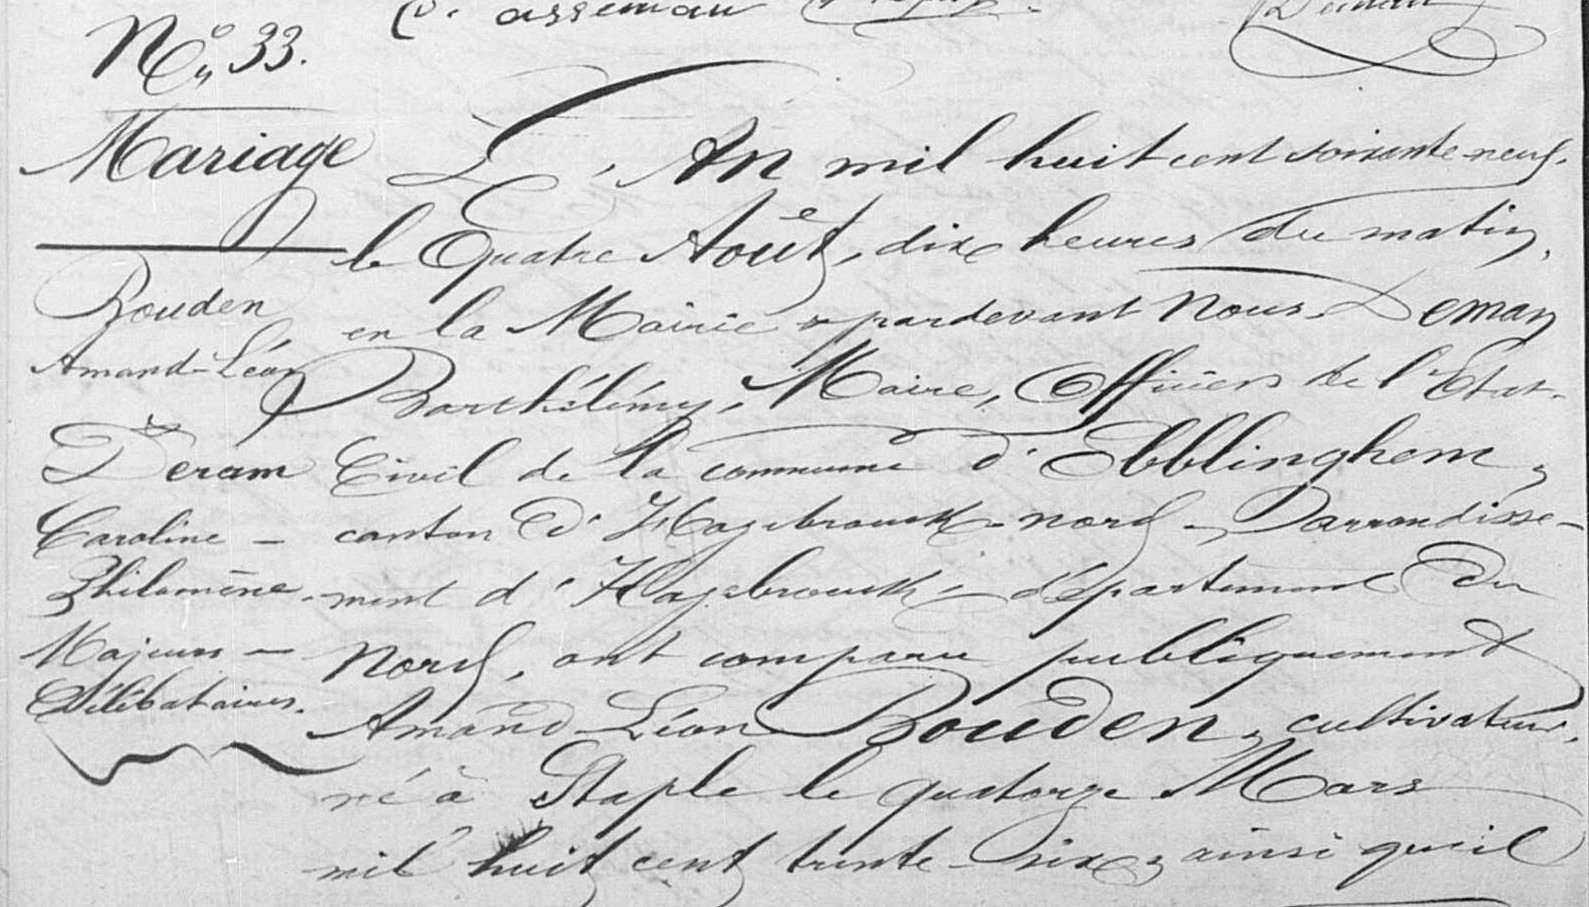 asseman
N° 33.
Mariage
Bouden
Amand-Léon
&
Deram
Caroline -
Philomène.
Majeurs -
Célibataires.
L'An mil huit cent soixante-neuf.
le Quatre Août, dix heures du matin,
en la Mairie & pardevant Nous Deman
Barthélémy, Maire, Officier de l'Etat-
Civil de la commune d'Ebblinghem,
canton d'Hazebrouck-nord, Darrondisse-
ment d'Hazebrouck, département du
Nord, ont comparu publiquement
Amand-Léon Bouden, cultivateur,
né à Staple le quatorze Mars
mil huit cent trente-six, ainsi qu'il